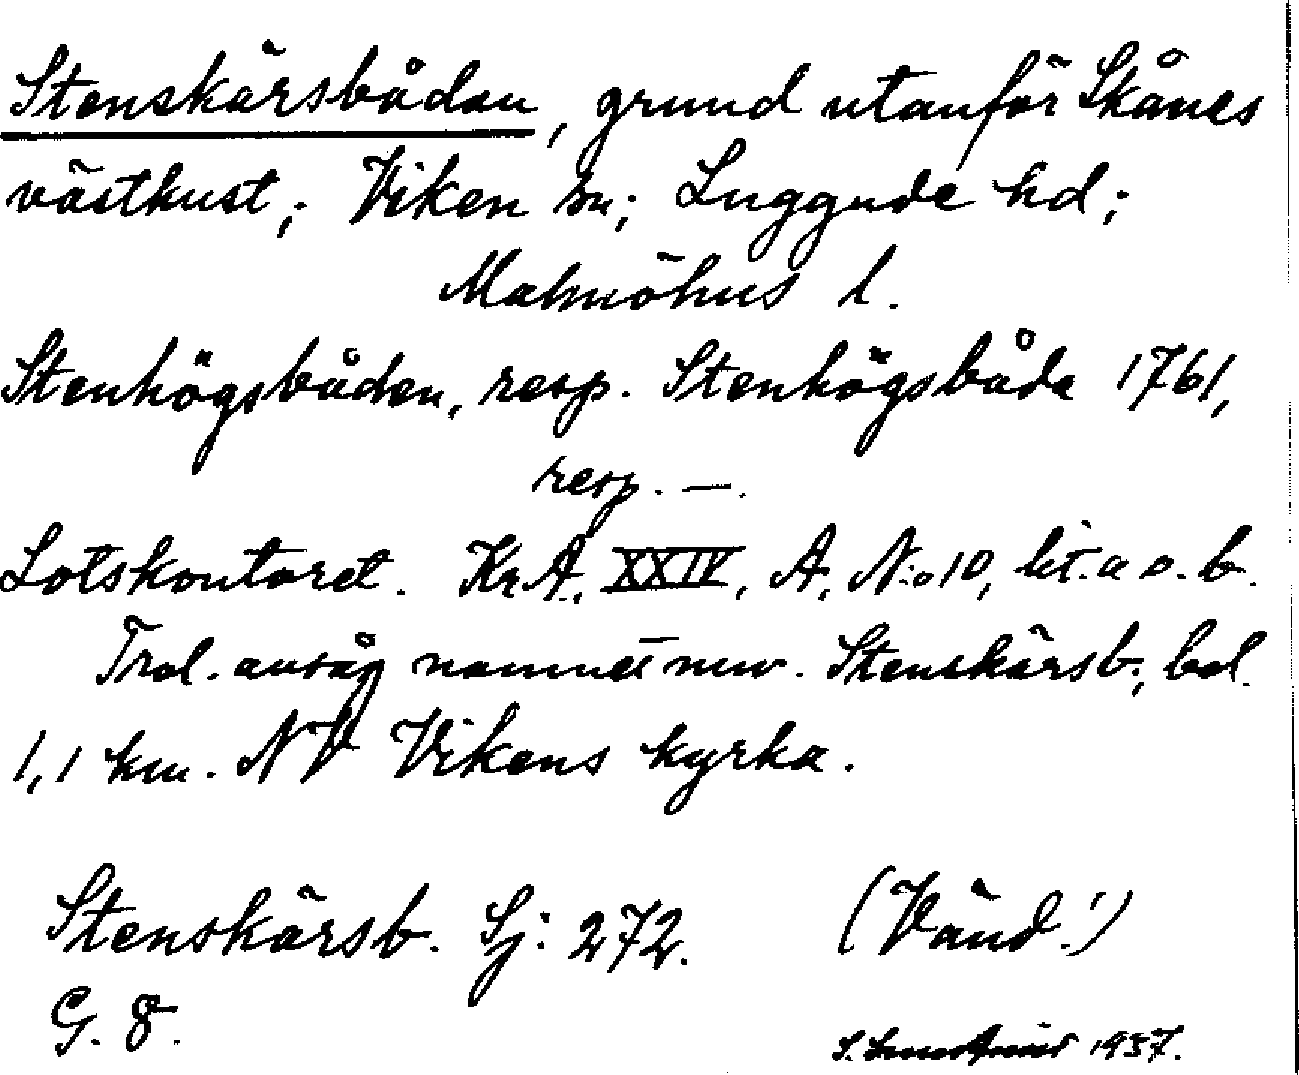 Stenskärsbåden, grund utanför Skånes
västkust; Viken sn; Luggude hd;
Malmöhus l.
Stenhögsbåden, resp. Stenhögsbåda 1761,
resp. —.
Lotskontoret. Kr.A. XXIV, A, N:o 10, lit. a o. b.
Trol. avsåg namnet nuv. Stenskärsb., bel.
1,1 km. NV Vikens kyrka.
Stenskärsb. Sj: 272. (Vänd!)
G. 8.
S. 1937.